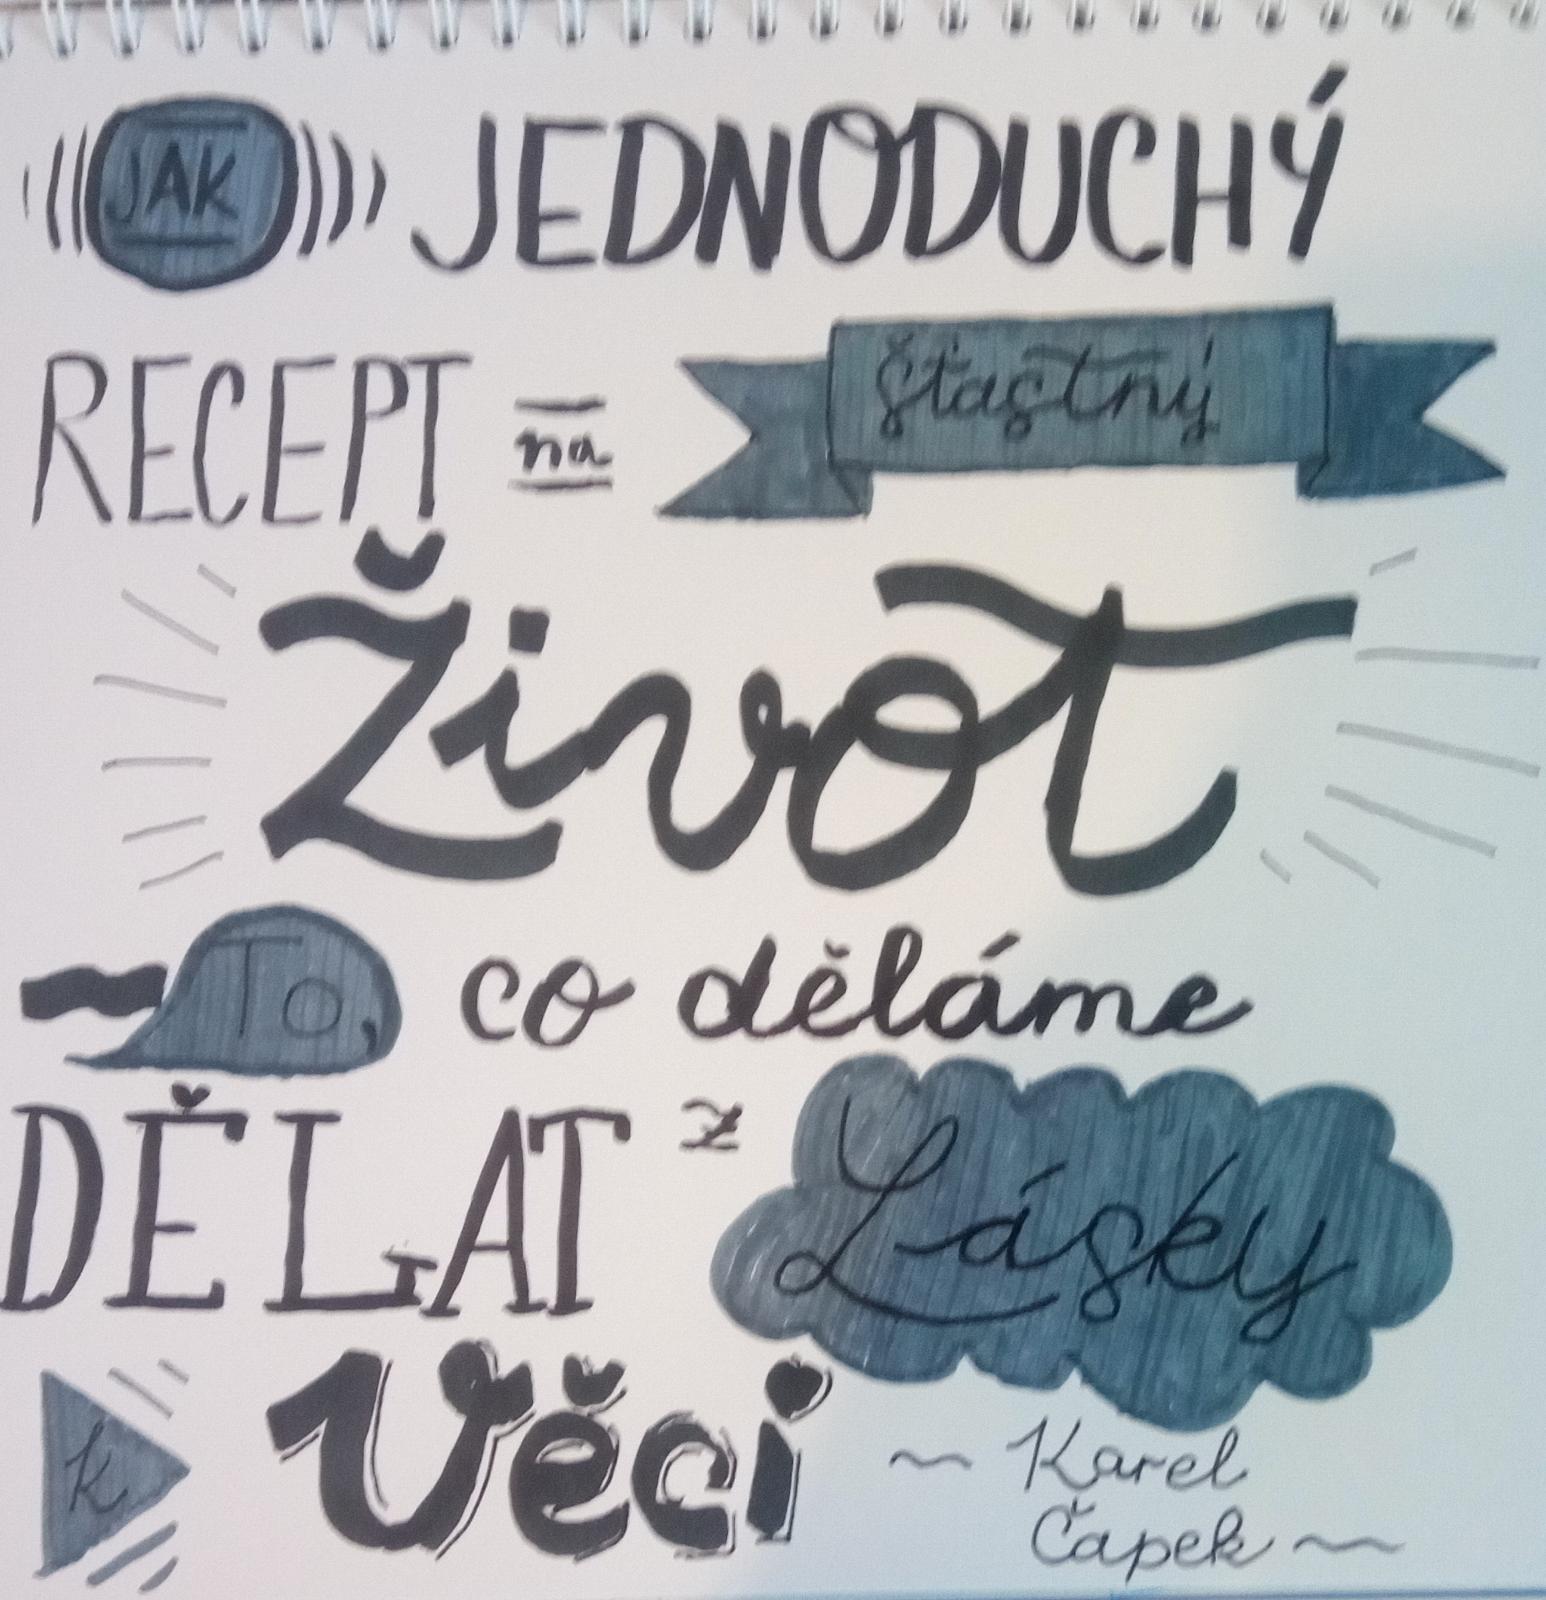 JAK JEDNODUCHÝ
RECEPT na šťastný
Život
- To, co děláme
DĚLAT z Lásky
k Věci ~ Karel
Čapek ~